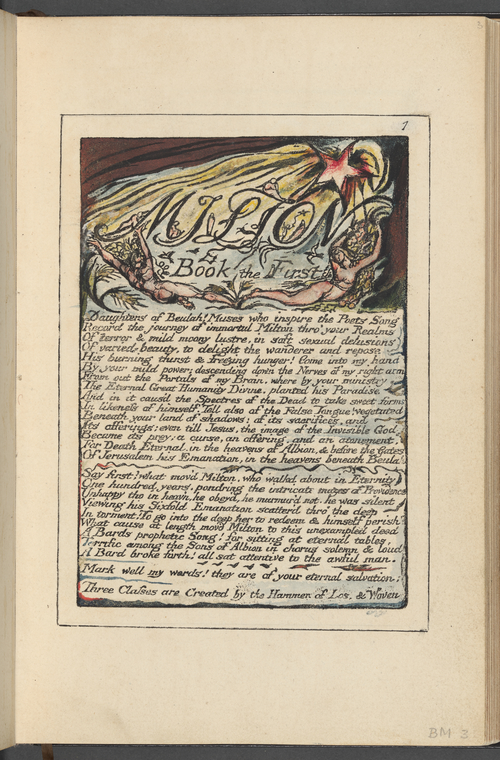 1
MILTON
Book the First
Daughters of Beulah! Muses who inspire the Poets Song
Record the journey of immortal Milton thro' your Realms
Of terror & mild moony lustre, in soft sexual delusions
Of varied beauty, to delight the wanderer and repose
His burning thirst & freezing hunger! Come into my hand
By your mild power; descending down the Nerves of my right arm
From out the Portals of my Brain, where by your ministry
The Eternal Great Humanity Divine, planted his Paradise,
And in it caus'd the Spectres of the Dead to take sweet forms
In likeness of himself. Tell also of the False Tongue! vegetated
Beneath your land of shadows: of its sacrifices, and
Its offerings; even till Jesus, the image of the Invisible God
Became its prey; a curse, an offering, and an atonement,
For Death Eternal in the heavens of Albion, & before the Gates
Of Jerusalem his Emanation, in the heavens beneath Beulah
Say first! what mov'd Milton, who walkd about in Eternity
One hundred years, pondring the intricate mazes of Providence
Unhappy tho in heav'n, he obey'd, he murmur'd not. he was silent
Viewing his Sixfold Emanation scatter'd thro' the deep
In torment! To go into the deep her to redeem & himself perish?
What cause at length mov'd Milton to this unexampled deed
A Bards prophetic Song! for sitting at eternal tables,
Terrific among the Sons of Albion in chorus solemn & loud
A Bard broke forth! all sat attentive to the awful man.
Mark well my words! they are of your eternal salvation:
Three Classes are Created by the Hammer of Los, & Woven
BM 3